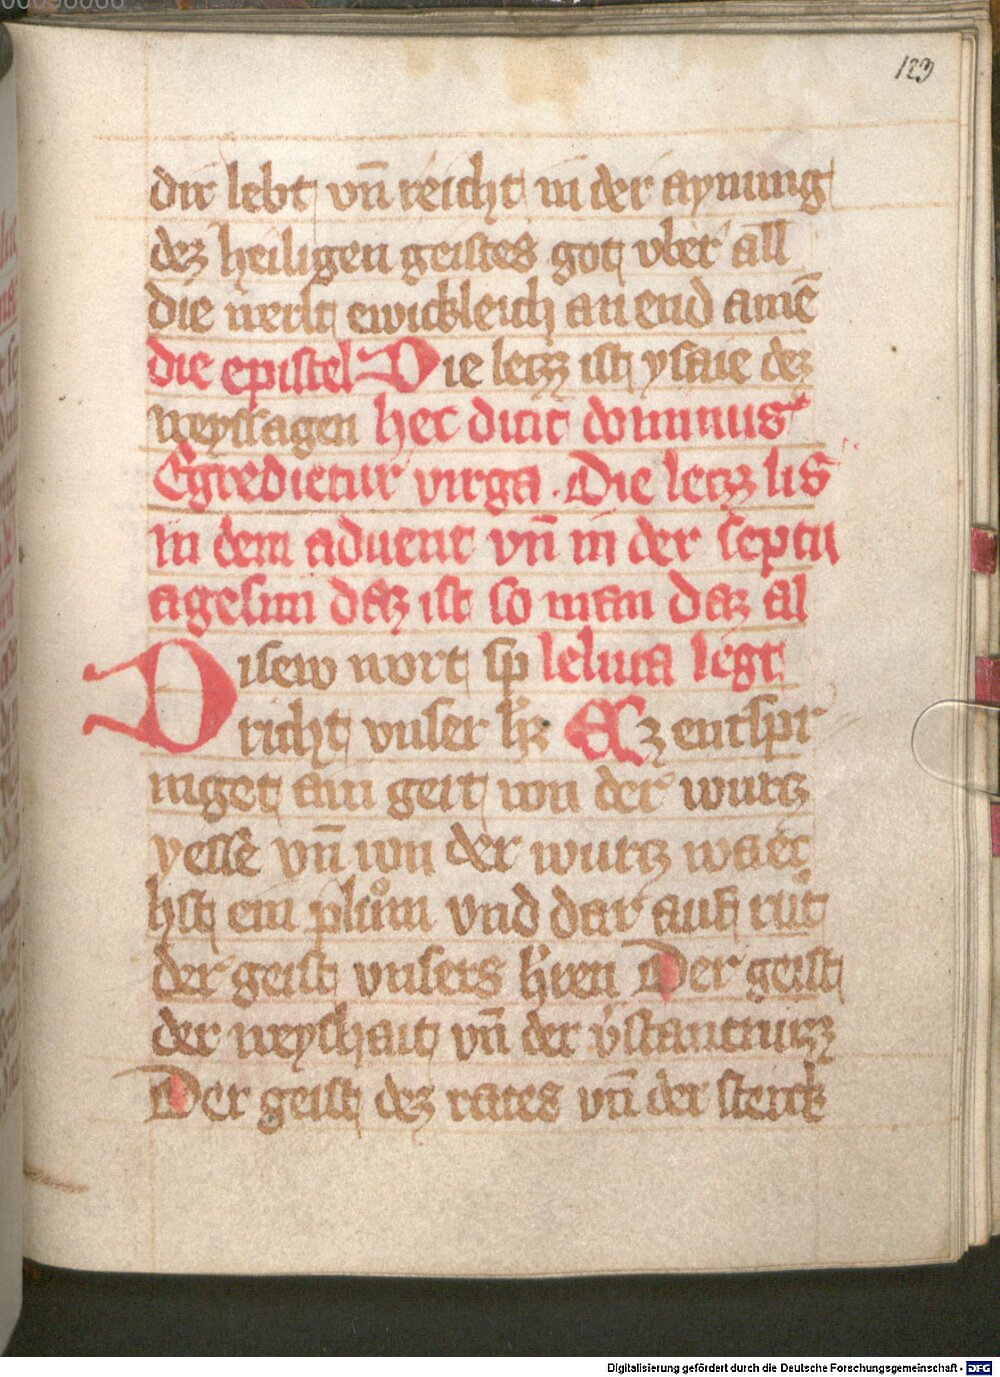 123
dir lebt vn̄ reicht in der aynung
dez heiligen geistes got vber all
die werlt ewickleich an end amē
die epistel Die leczz ist ysaie dez
weyssagen hec dicit dominus
Egredietur virga. Die leczz lis
in dem aduent vn̄ in der septu
agesim daz ist so man daz al
Disew wort sp leluia legt
richt vnser hr̄ Ez entspr
inget ain gert von der wurcz
yesse vn̄ von der wurcz waec
hst ein plům vnd dar auf rut
der geist vnsers hr̄ren Der geist
der weyshait vn̄ der v̓stantnuzz
Der geist dez rates vn̄ der sterck
Digitalisierung gefördert durch die Deutsche Forschungsgemeinschaft - DFG